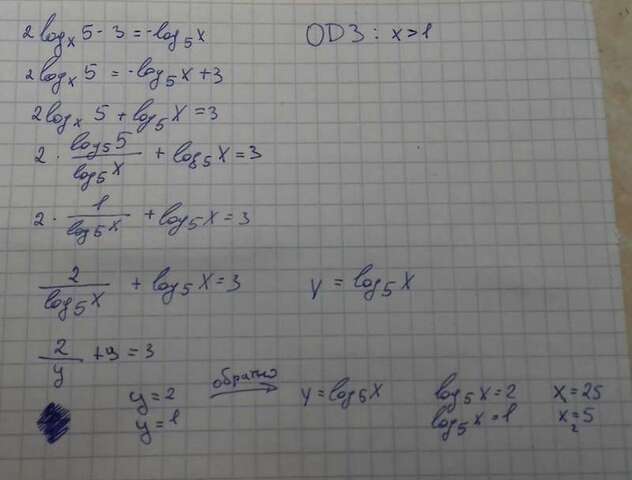 2log_x 5 - 3 = -log_5 x
ОДЗ: x > 1
2log_x 5 = -log_5 x + 3
2log_x 5 + log_5 x = 3
2 · log_5 5 / log_5 x + log_5 x = 3
2 · 1 / log_5 x + log_5 x = 3
2 / log_5 x + log_5 x = 3
y = log_5 x
2 / y + y = 3
y = 2
y = 1
обратно
y = log_5 x
log_5 x = 2
log_5 x = 1
x_1 = 25
x_2 = 5